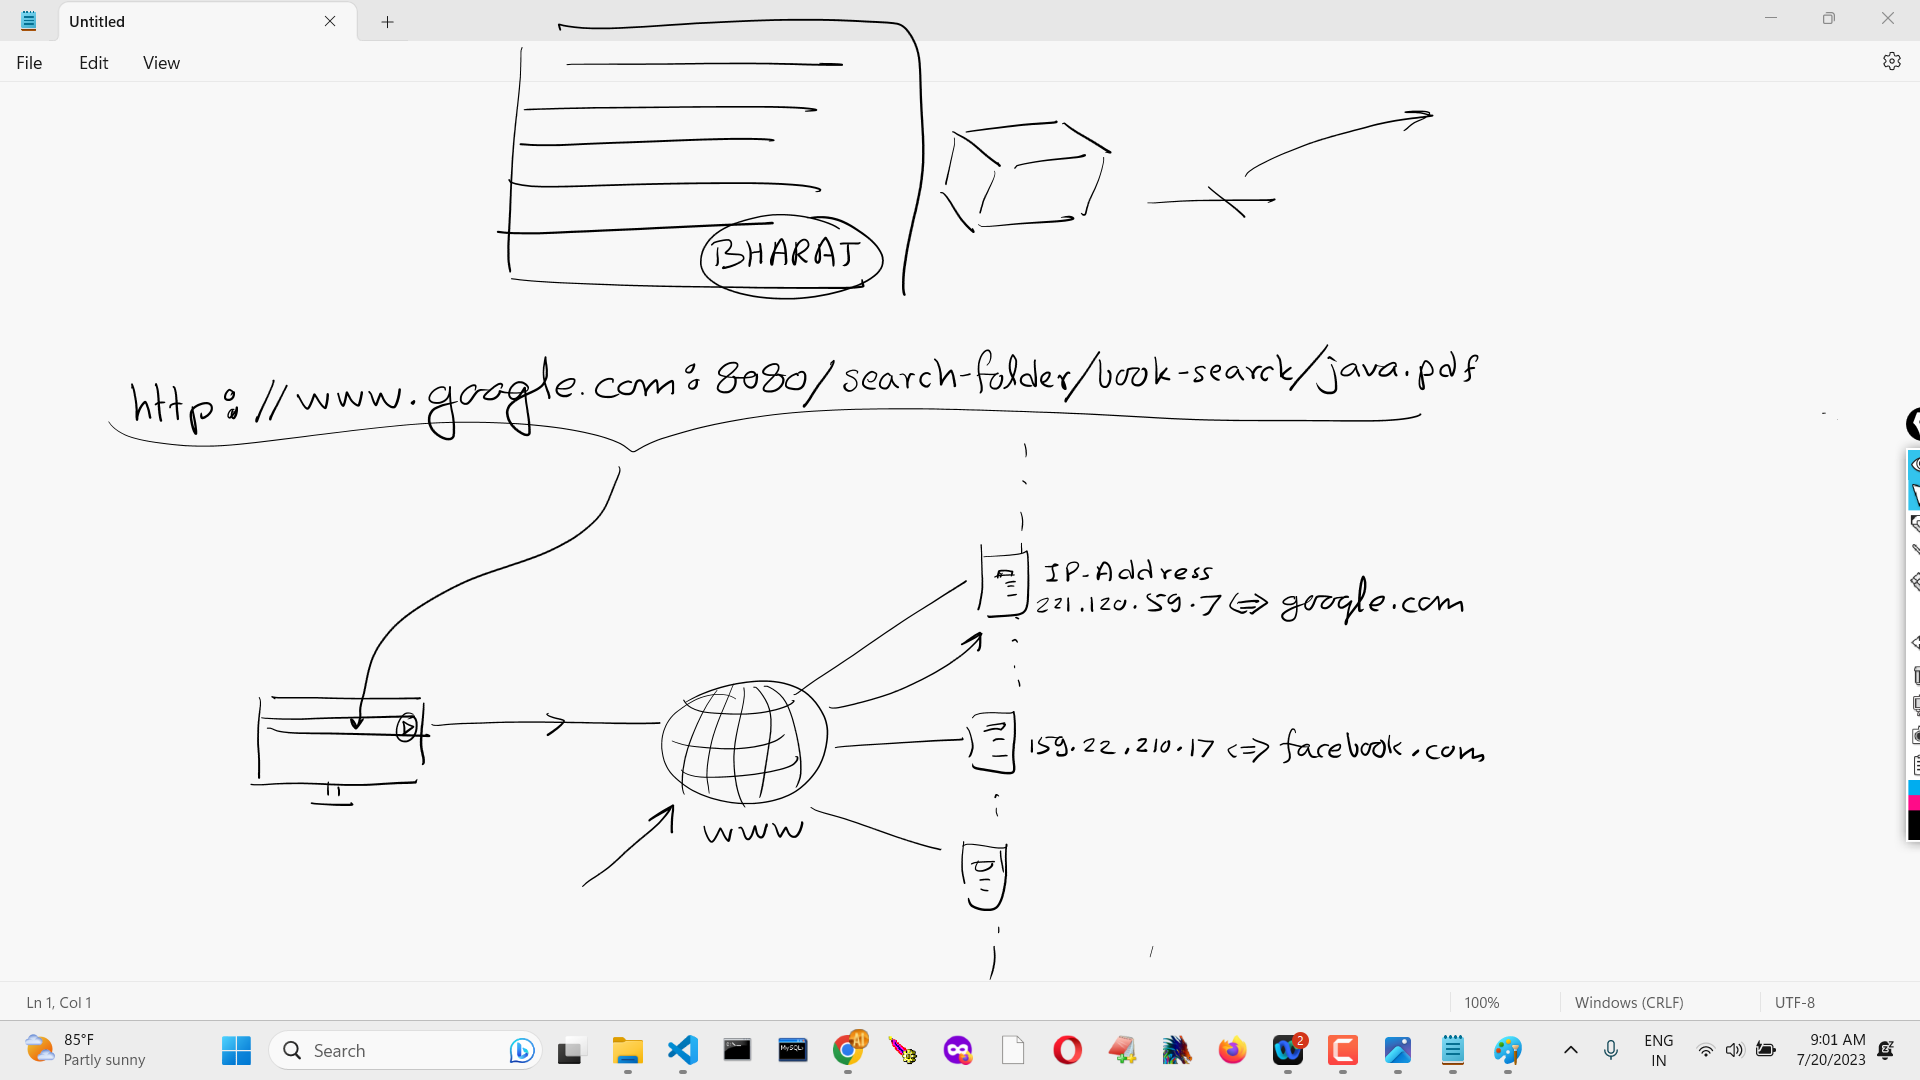 Untitled
File Edit View
BHARAT
http://www.google.com:8080/search-folder/book-search/java.pdf
IP-Address
221.120.59.7 <=> google.com
159.22.210.17 <=> facebook.com
www
Ln 1, Col 1
100%
Windows (CRLF)
UTF-8
85°F
Partly sunny
Search
MySQL
AI
2
ENG
IN
9:01 AM
7/20/2023